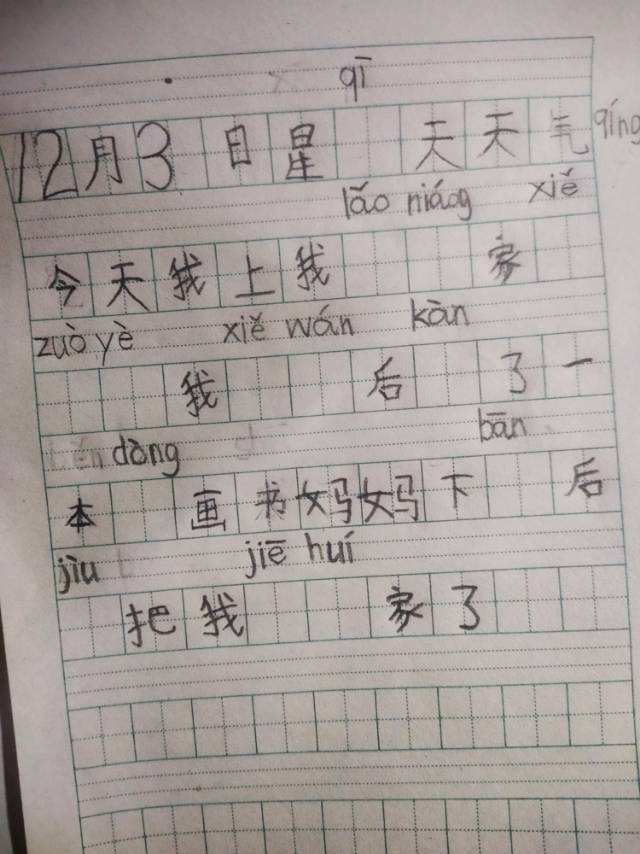 qī
12月3日星 天天气qíng
lǎo niáog xiě
今天我上我 家
zuò yè xiě wán kàn
我 后 了一
dòng bān
本 画书妈妈下 后
jìu jiē huí
把我 家了